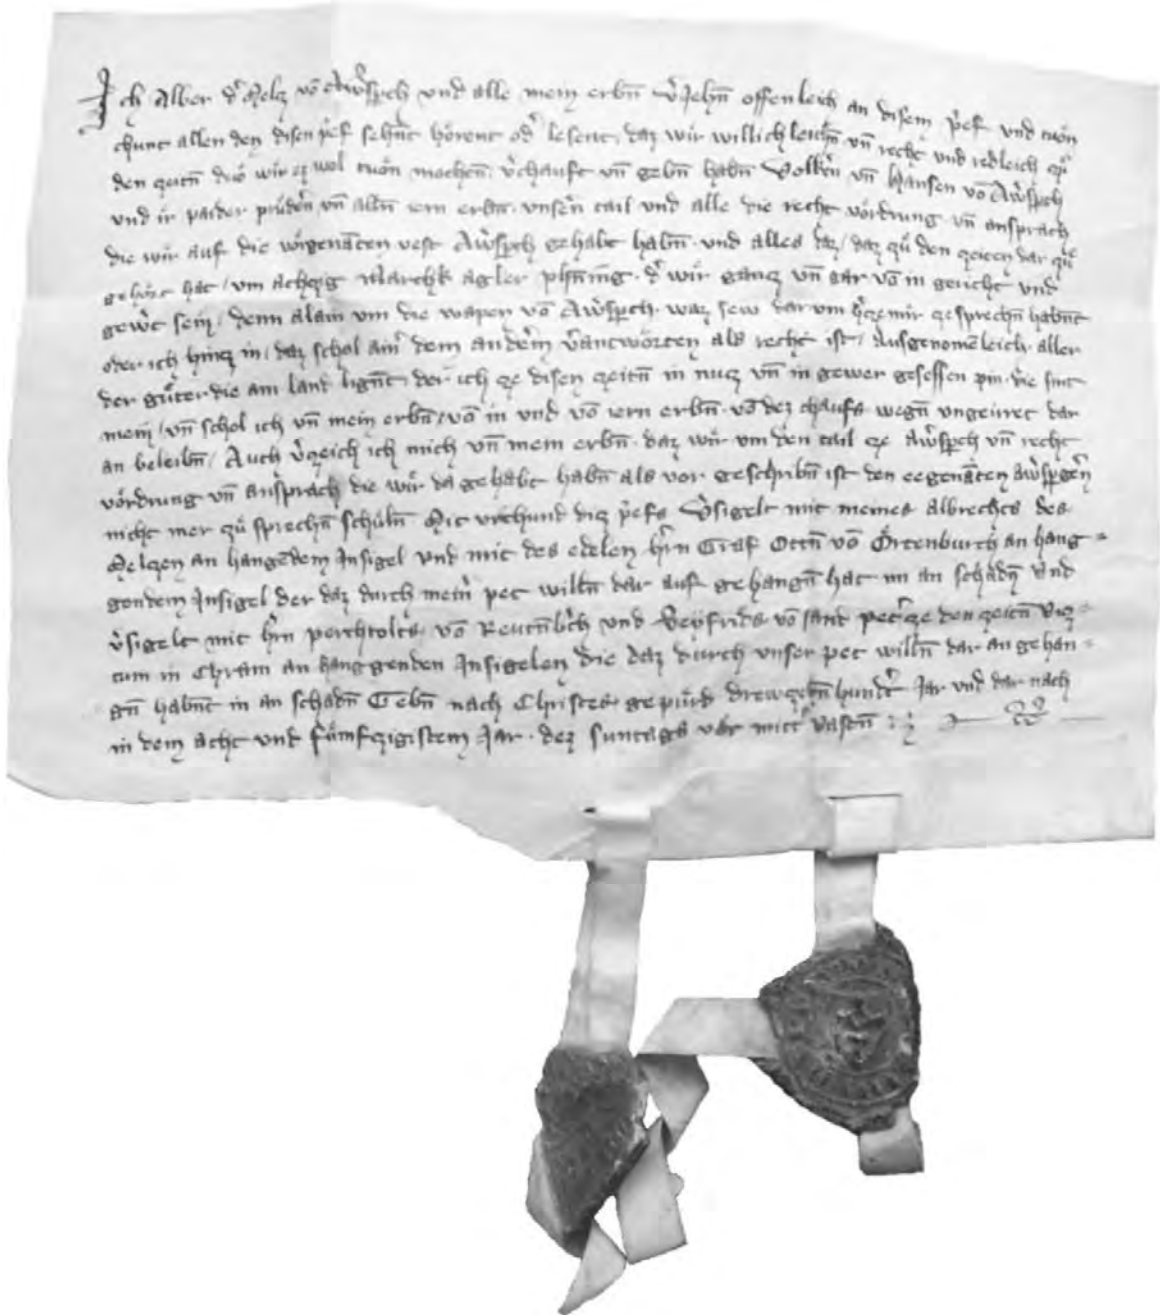 Ich Alber d' Melz vō Aw'sperch vnd alle mein erbn̄ v'Jehn̄ offenleich an disem p'ef vnd tuön
chunt allen den disen p'ef sehn̄t hörent od' lesent, daz wir willichleichn̄ vn̄ recht vnd redleich
den zeitn̄ do wir ez wol tuön mochen v'chauft vn̄ gebn̄ habn̄ Volk'n vn̄ Hansen vō Aw'sperch
vnd ir paider prüdern vn̄ alln̄ iern erbn̄ vnsern tail vnd alle die recht vördrung vn̄ ansprach
die wir auf die vest Aw'sperch gehabt habn̄ vnd alles daz, daz zü den zeiten dar zü
gehört hat, vm achzig March agler pfn̄ing d' wir gancz vn̄ gar vō in gericht vnd
gew't sein, denn alain vm die wapen vō Aw'sperch waz sew dar vm hincz mir ze sprechn̄ habn̄t
oder ich hincz in, daz schol ain' dem andern v'antwörten als recht ist, Ausgenomēleich aller
der güter die am land lign̄t der ich ze disen zeitn̄ in nucz vn̄ in gewer gesessen pin die sint
mein, vn̄ schol ich vn̄ mein erbn̄, vō in vnd vō iern erbn̄ vō dez chaufs wegn̄ vngeirret dar
an beleibn̄, Auch v'zeich ich mich vn̄ mein erbn̄ daz wir vm den tail ze Aw'sperch vn̄ recht
vördrung vn̄ ansprach die wir da gehabt habn̄ als vor geschribn̄ ist den egenāten Aw'sperg'n
nicht mer zü sprechn̄ schüln̄ Mit vrchund diz p'efs V'sigelt mit meines Albrechts des
Melzen an hangēdem Insigel vnd mit des edelen h'rn Graf Ottn̄ vō Örtenburch an hang=
gendem Insigel der daz durch mein' pet willn̄ dar auf gehangn̄ hat im an schadn̄ vnd
v'sigelt mit h'rn perchtolts vō Reutn̄b'ch vnd Seyfrids vō sant pet' ze den zeitn̄ viz=
tum in Chrain an hanggenden Insigelen die daz durch vnser pet willn̄ dar an gehan=
gn̄ habn̄t in an schadn̄ Gebn̄ nach Christes gepürd drewzehn̄hundt' Jar vnd dar nach
in dem acht vnd fümfzigistem Jar dez suntags vor mitt' vastn̄